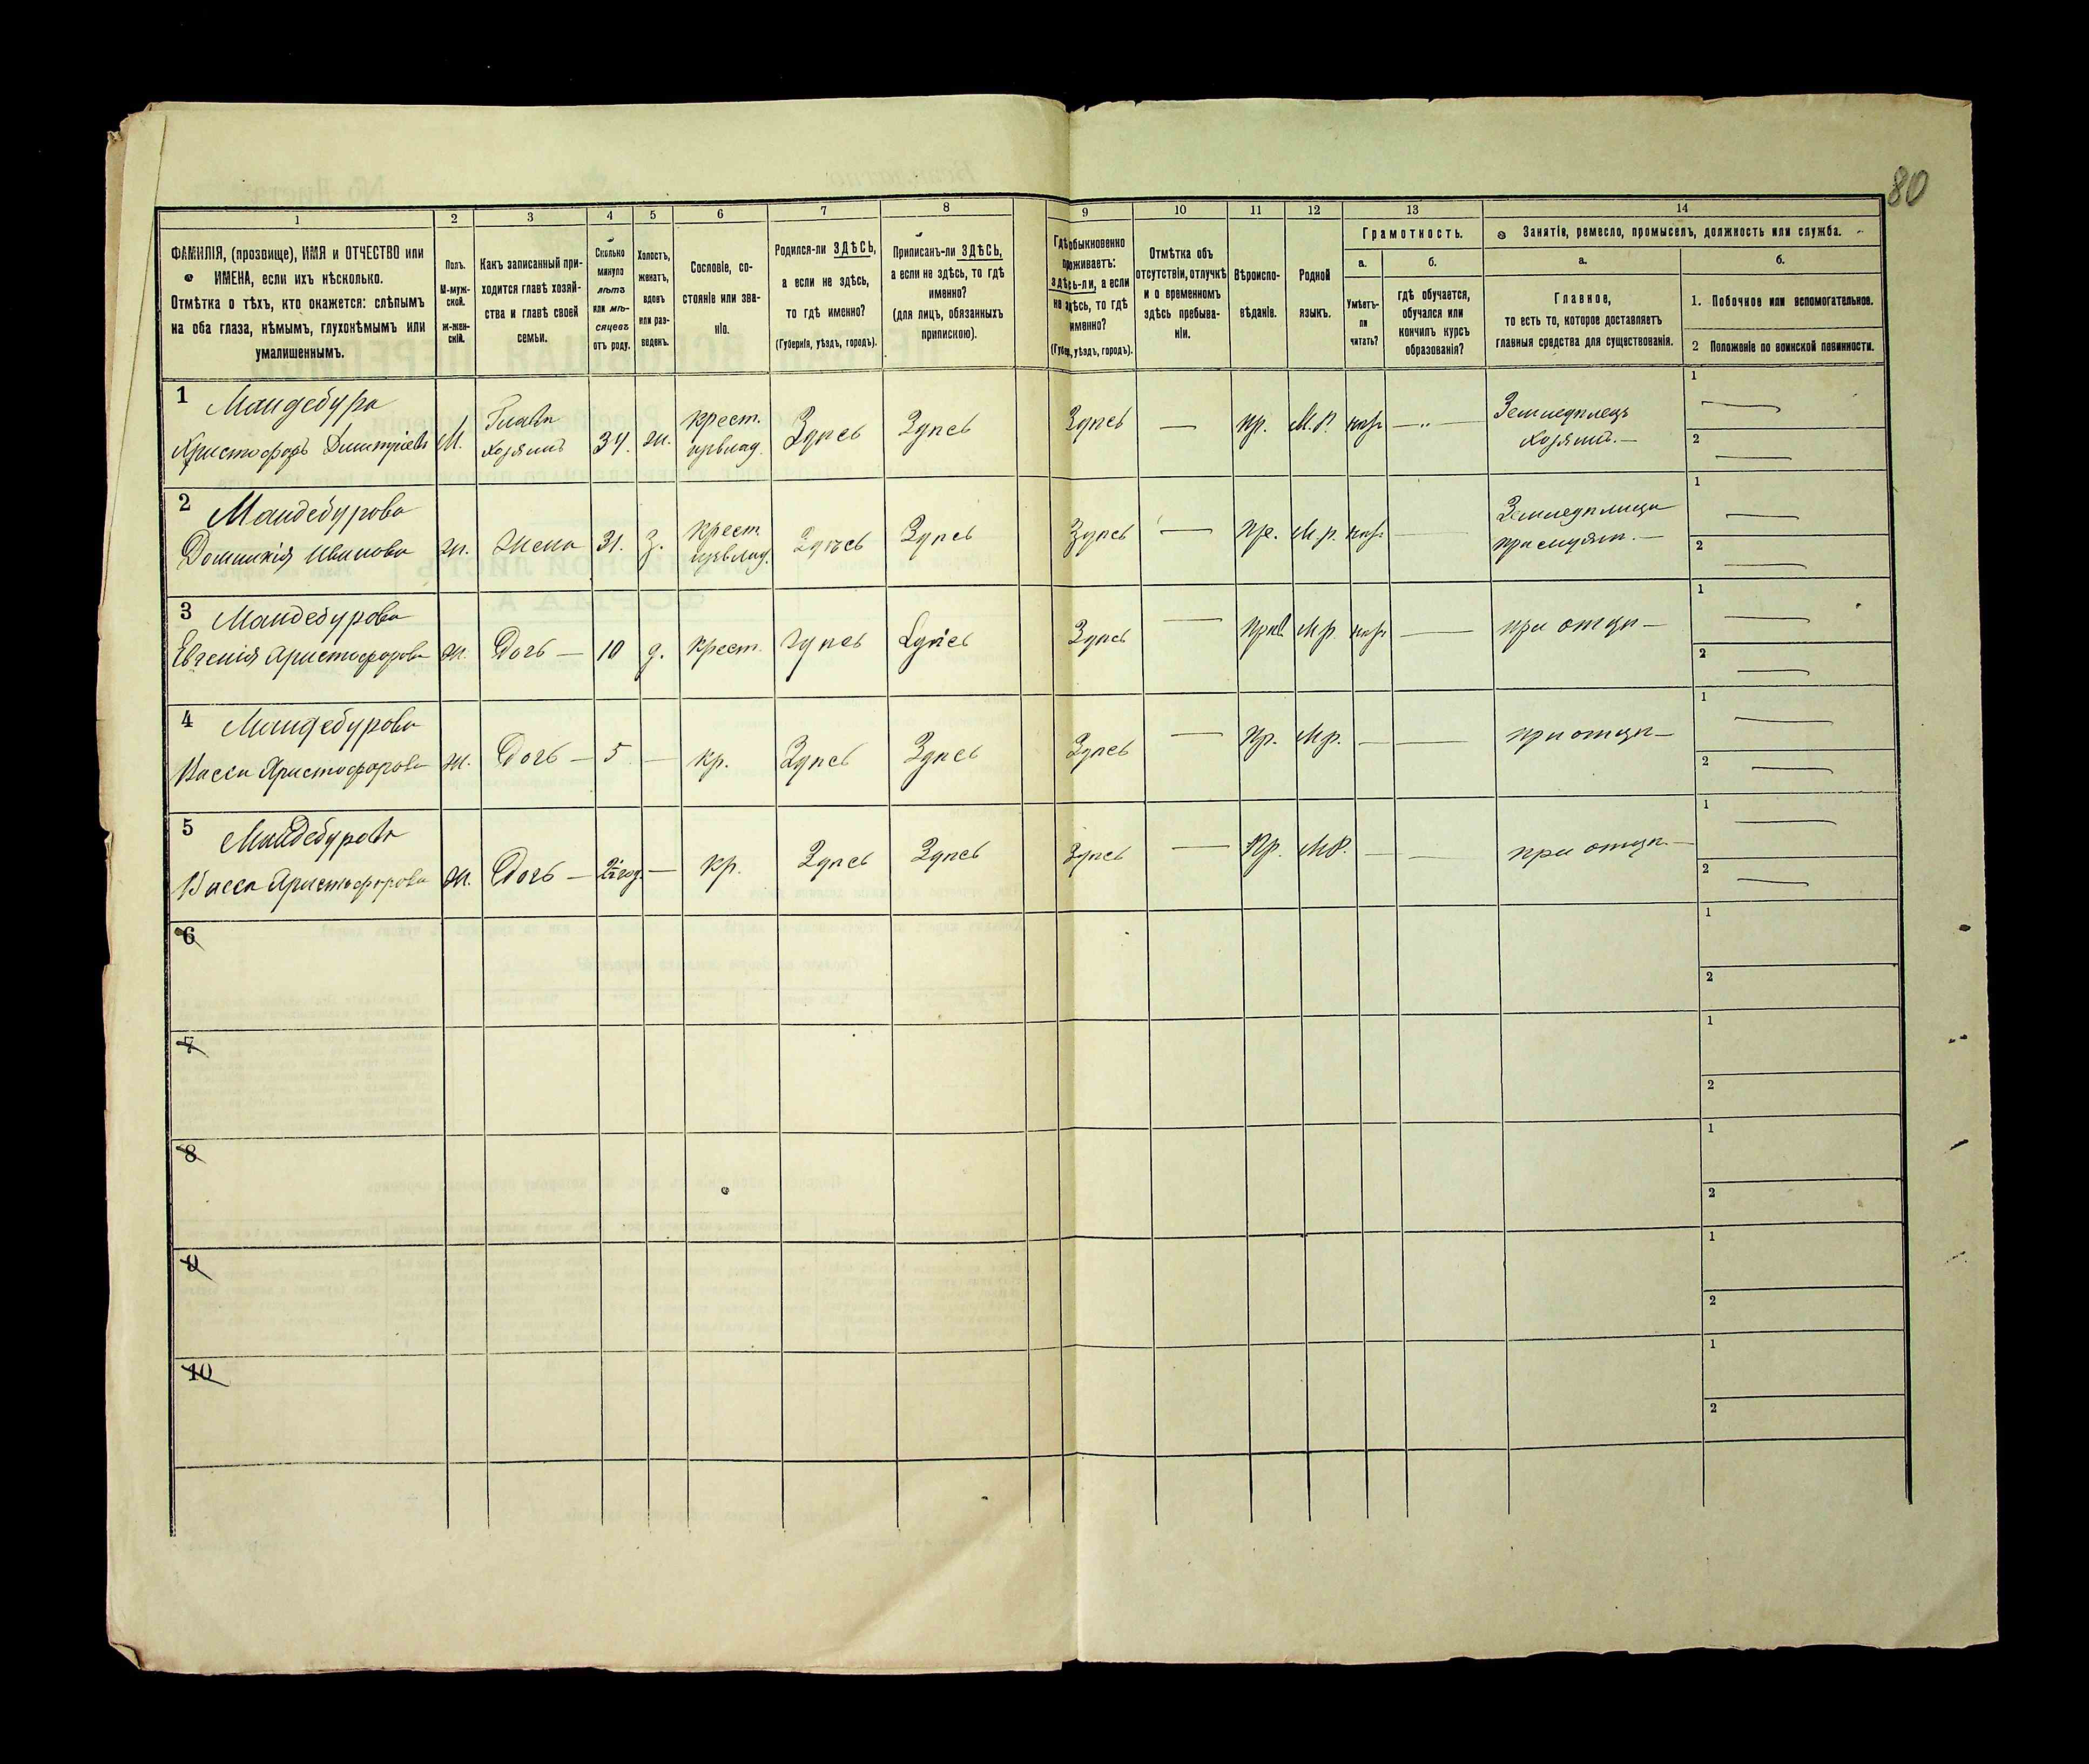 80
1 2 3 4 5 6 7 8 9 10 11 12 13 14
ФАМИЛІЯ, (прозвище), ИМЯ и ОТЧЕСТВО или
ИМЕНА, если ихъ нѣсколько.
Отмѣтка о тѣхъ, кто окажется: слѣпымъ
на оба глаза, нѣмымъ, глухонѣмымъ или
умалишеннымъ.
Полъ.
М-муж-
ской.
Ж-жен-
скій.
Какъ записанный при-
ходится главѣ хозяй-
ства и главѣ своей
семьи.
Сколько
минуло
лѣтъ
или мѣ-
сяцевъ
отъ роду.
Холостъ,
женатъ,
вдовъ
или раз-
веденъ.
Сословіе, со-
стояніе или зва-
ніе.
Родился-ли ЗДѢСЬ,
а если не здѣсь,
то гдѣ именно?
(Губернія, уѣздъ, городъ).
Приписанъ-ли ЗДѢСЬ,
а если не здѣсь, то гдѣ
именно?
(для лицъ, обязанныхъ
припискою).
Гдѣ обыкновенно
проживаетъ:
здѣсь-ли, а если
не здѣсь, то гдѣ
именно?
(Губер., уѣздъ, городъ).
Отмѣтка объ
отсутствіи, отлучкѣ
и о временномъ
здѣсь пребыва-
ніи.
Вѣроиспо-
вѣданіе.
Родной
языкъ.
Грамотность.
а.
Умѣетъ-
ли
читать?
б.
гдѣ обучается,
обучался или
кончилъ курсъ
образованія?
Занятіе, ремесло, промыселъ, должность или служба.
а.
Главное,
то есть то, которое доставляетъ
главныя средства для существованія.
б.
1. Побочное или вспомогательное.
2 Положеніе по воинской повинности.
1 Мандебура
Христофоръ Димитріевъ М. Глава хозяинъ 34. ж. крест. Здѣсь Здѣсь Здѣсь — пр. М.Р. — Земледѣлецъ хозяинъ.— 1 — 2 —
2 Мандебурова
Домникія Иванова ж. Жена 31. З. крест. Здѣсь Здѣсь Здѣсь — пр. М.р. — Земледѣлица при мужѣ.— 1 — 2 —
3 Мандебурова
Евгенія Христофорова ж. Дочь — 10 д. крест. Здѣсь Здѣсь Здѣсь — прав. М.р. — при отцѣ — 1 — 2 —
4 Мандебурова
Васса Христофорова ж. Дочь — 5 — кр. Здѣсь Здѣсь Здѣсь — пр. М.р. — — при отцѣ — 1 — 2 —
5 Мандебурова
Васса Христофорова ж. Дочь — — кр. Здѣсь Здѣсь Здѣсь — Пр. М.Р. — — при отцѣ — 1 — 2 —
6 1 2
7 1 2
8 1 2
9 1 2
10 1 2